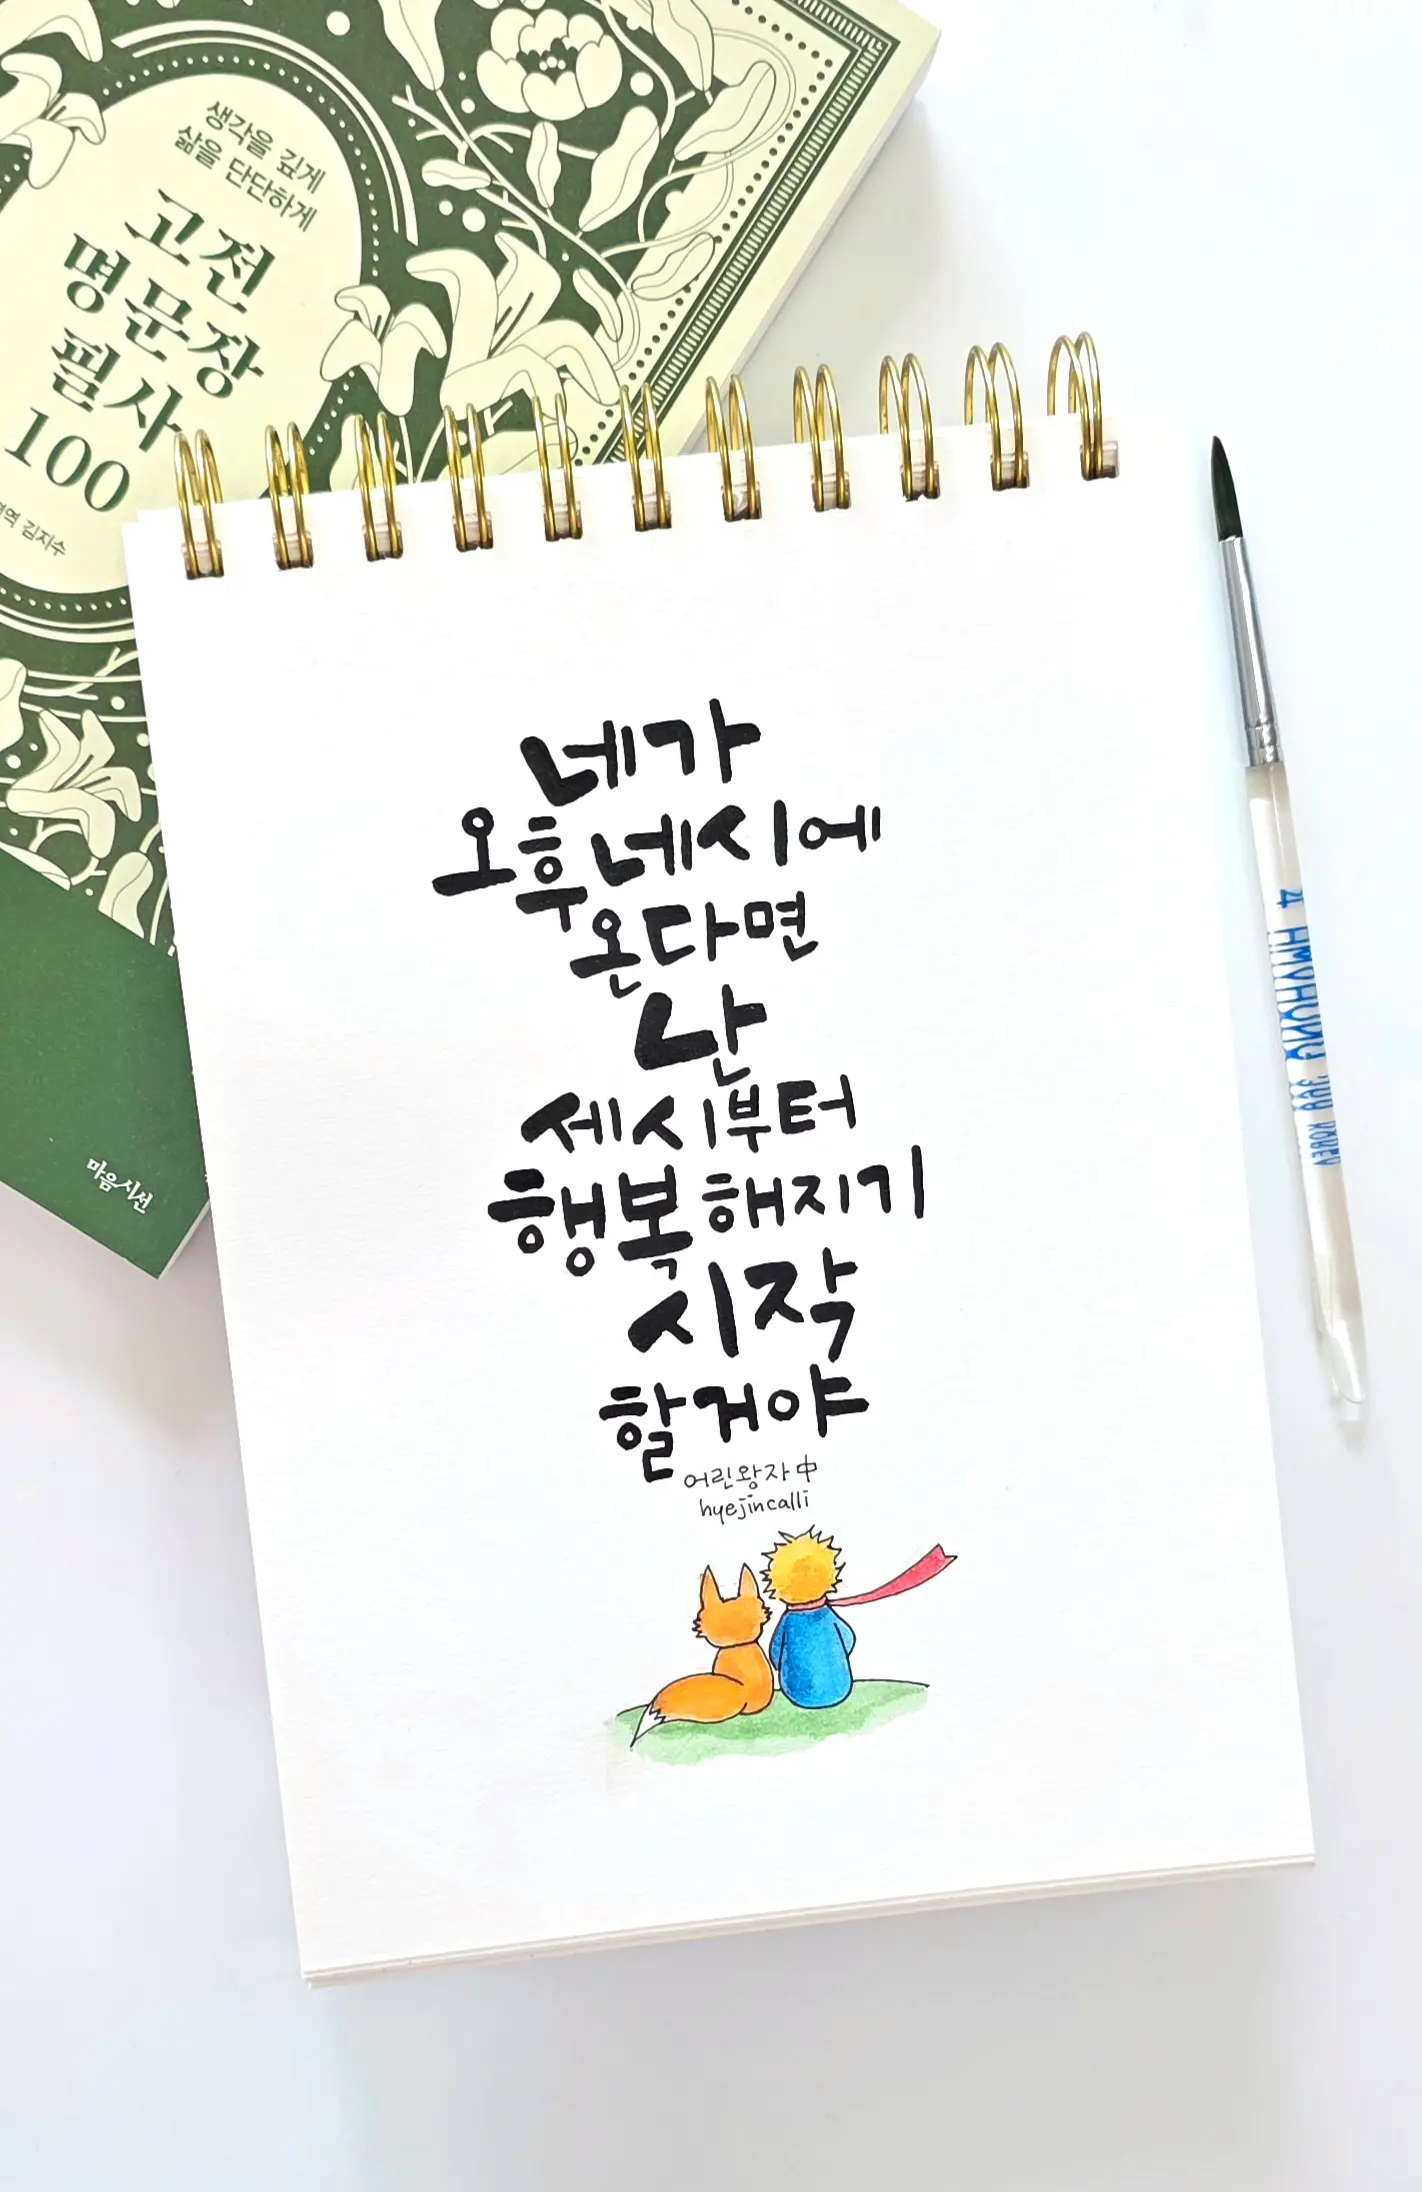 생각을 깊게
삶을 단단하게
고전
명문장
필사
100
김지수
마음시선
네가
오후 네시에
온다면
난
세시부터
행복해지기
시작
할거야
어린왕자 中
hyejincalli
HWAHONG
KOREA